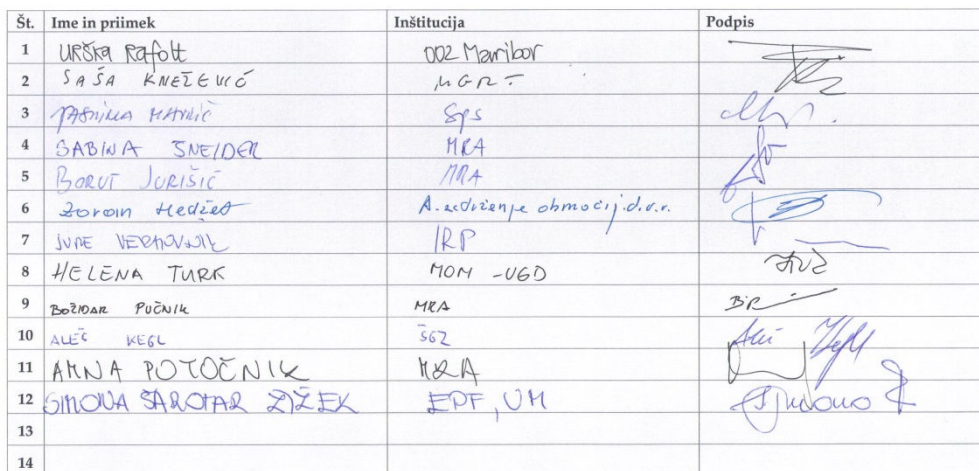 Št. Ime in priimek Inštitucija Podpis
1 URŠKA Rafolt 002 Maribor
2 SAŠA KNEŽEVIĆ MGRT
3 SPS
4 SABINA ŠNEIDER MRA
5 BORUT JURIŠIĆ MRA
6 Zoran Hedžet
7 JURE VERHOVNIK IRP
8 HELENA TURK MOM - UGD
9 BOŽIDAR PUČNIK MRA
10 ALEŠ KEGL ŠGZ
11 AMNA POTOČNIK MRA
12 SIMONA ŠAROTAR ŽIŽEK EPF, UM
13
14